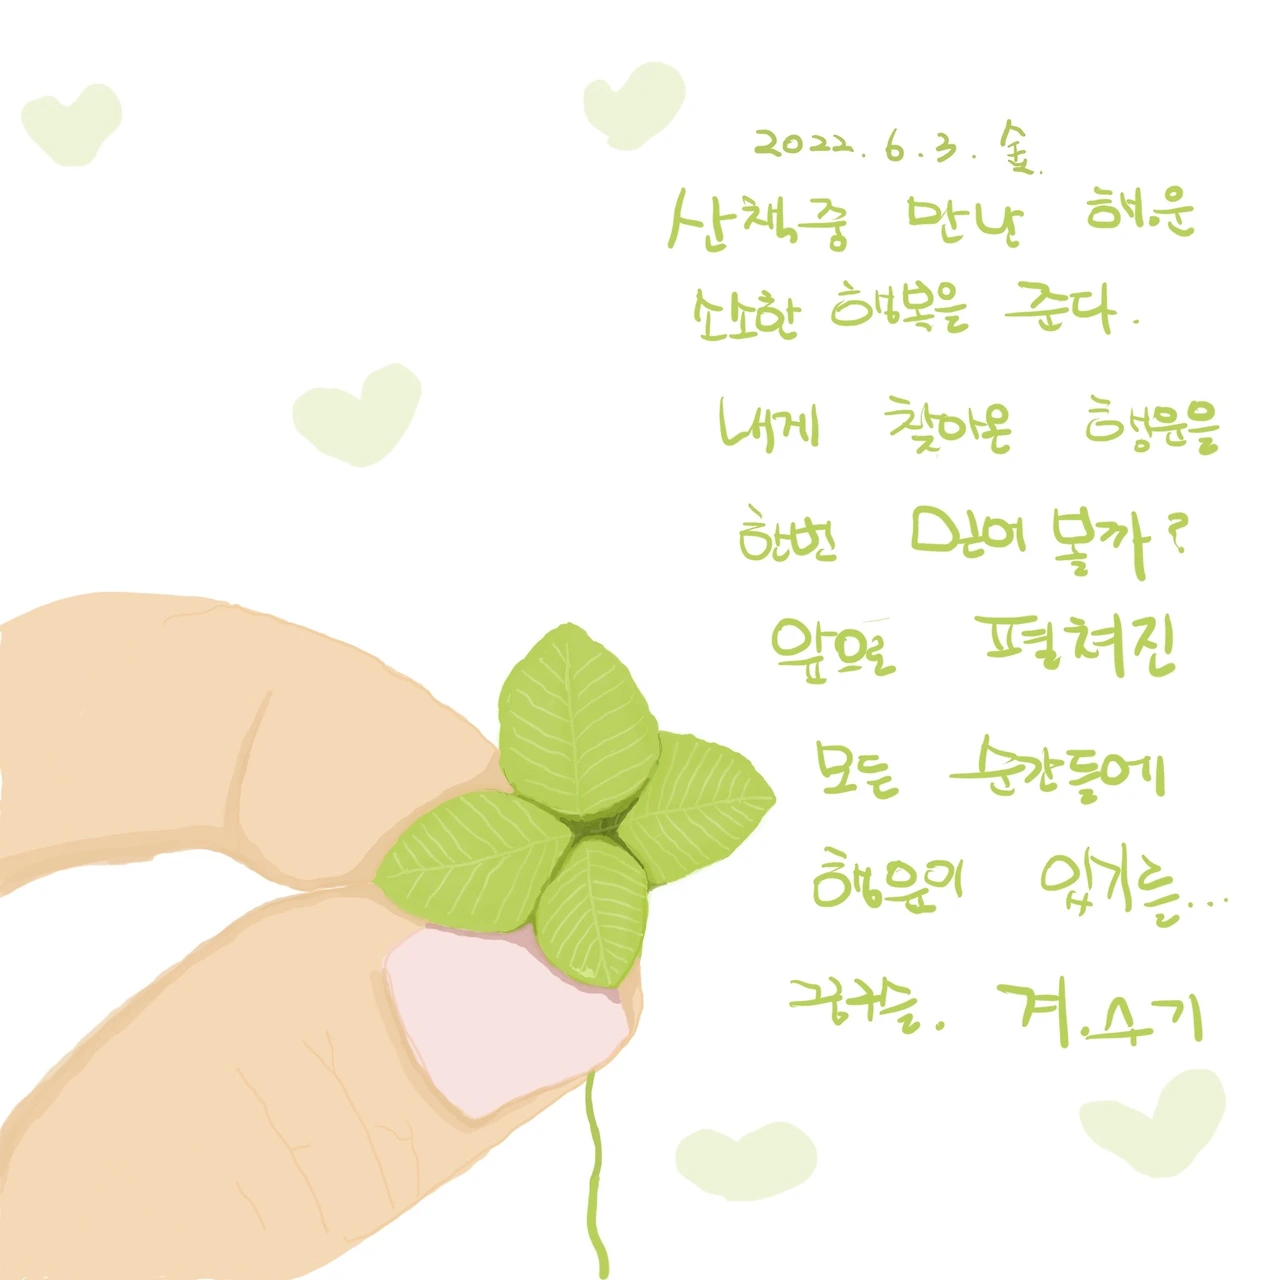 2022. 6. 3. 金.
산책중 만난 행운
소소한 행복을 준다.
내게 찾아온 행운을
한번 믿어 볼까?
앞으로 펼쳐진
모든 순간들에
행운이 있기를...